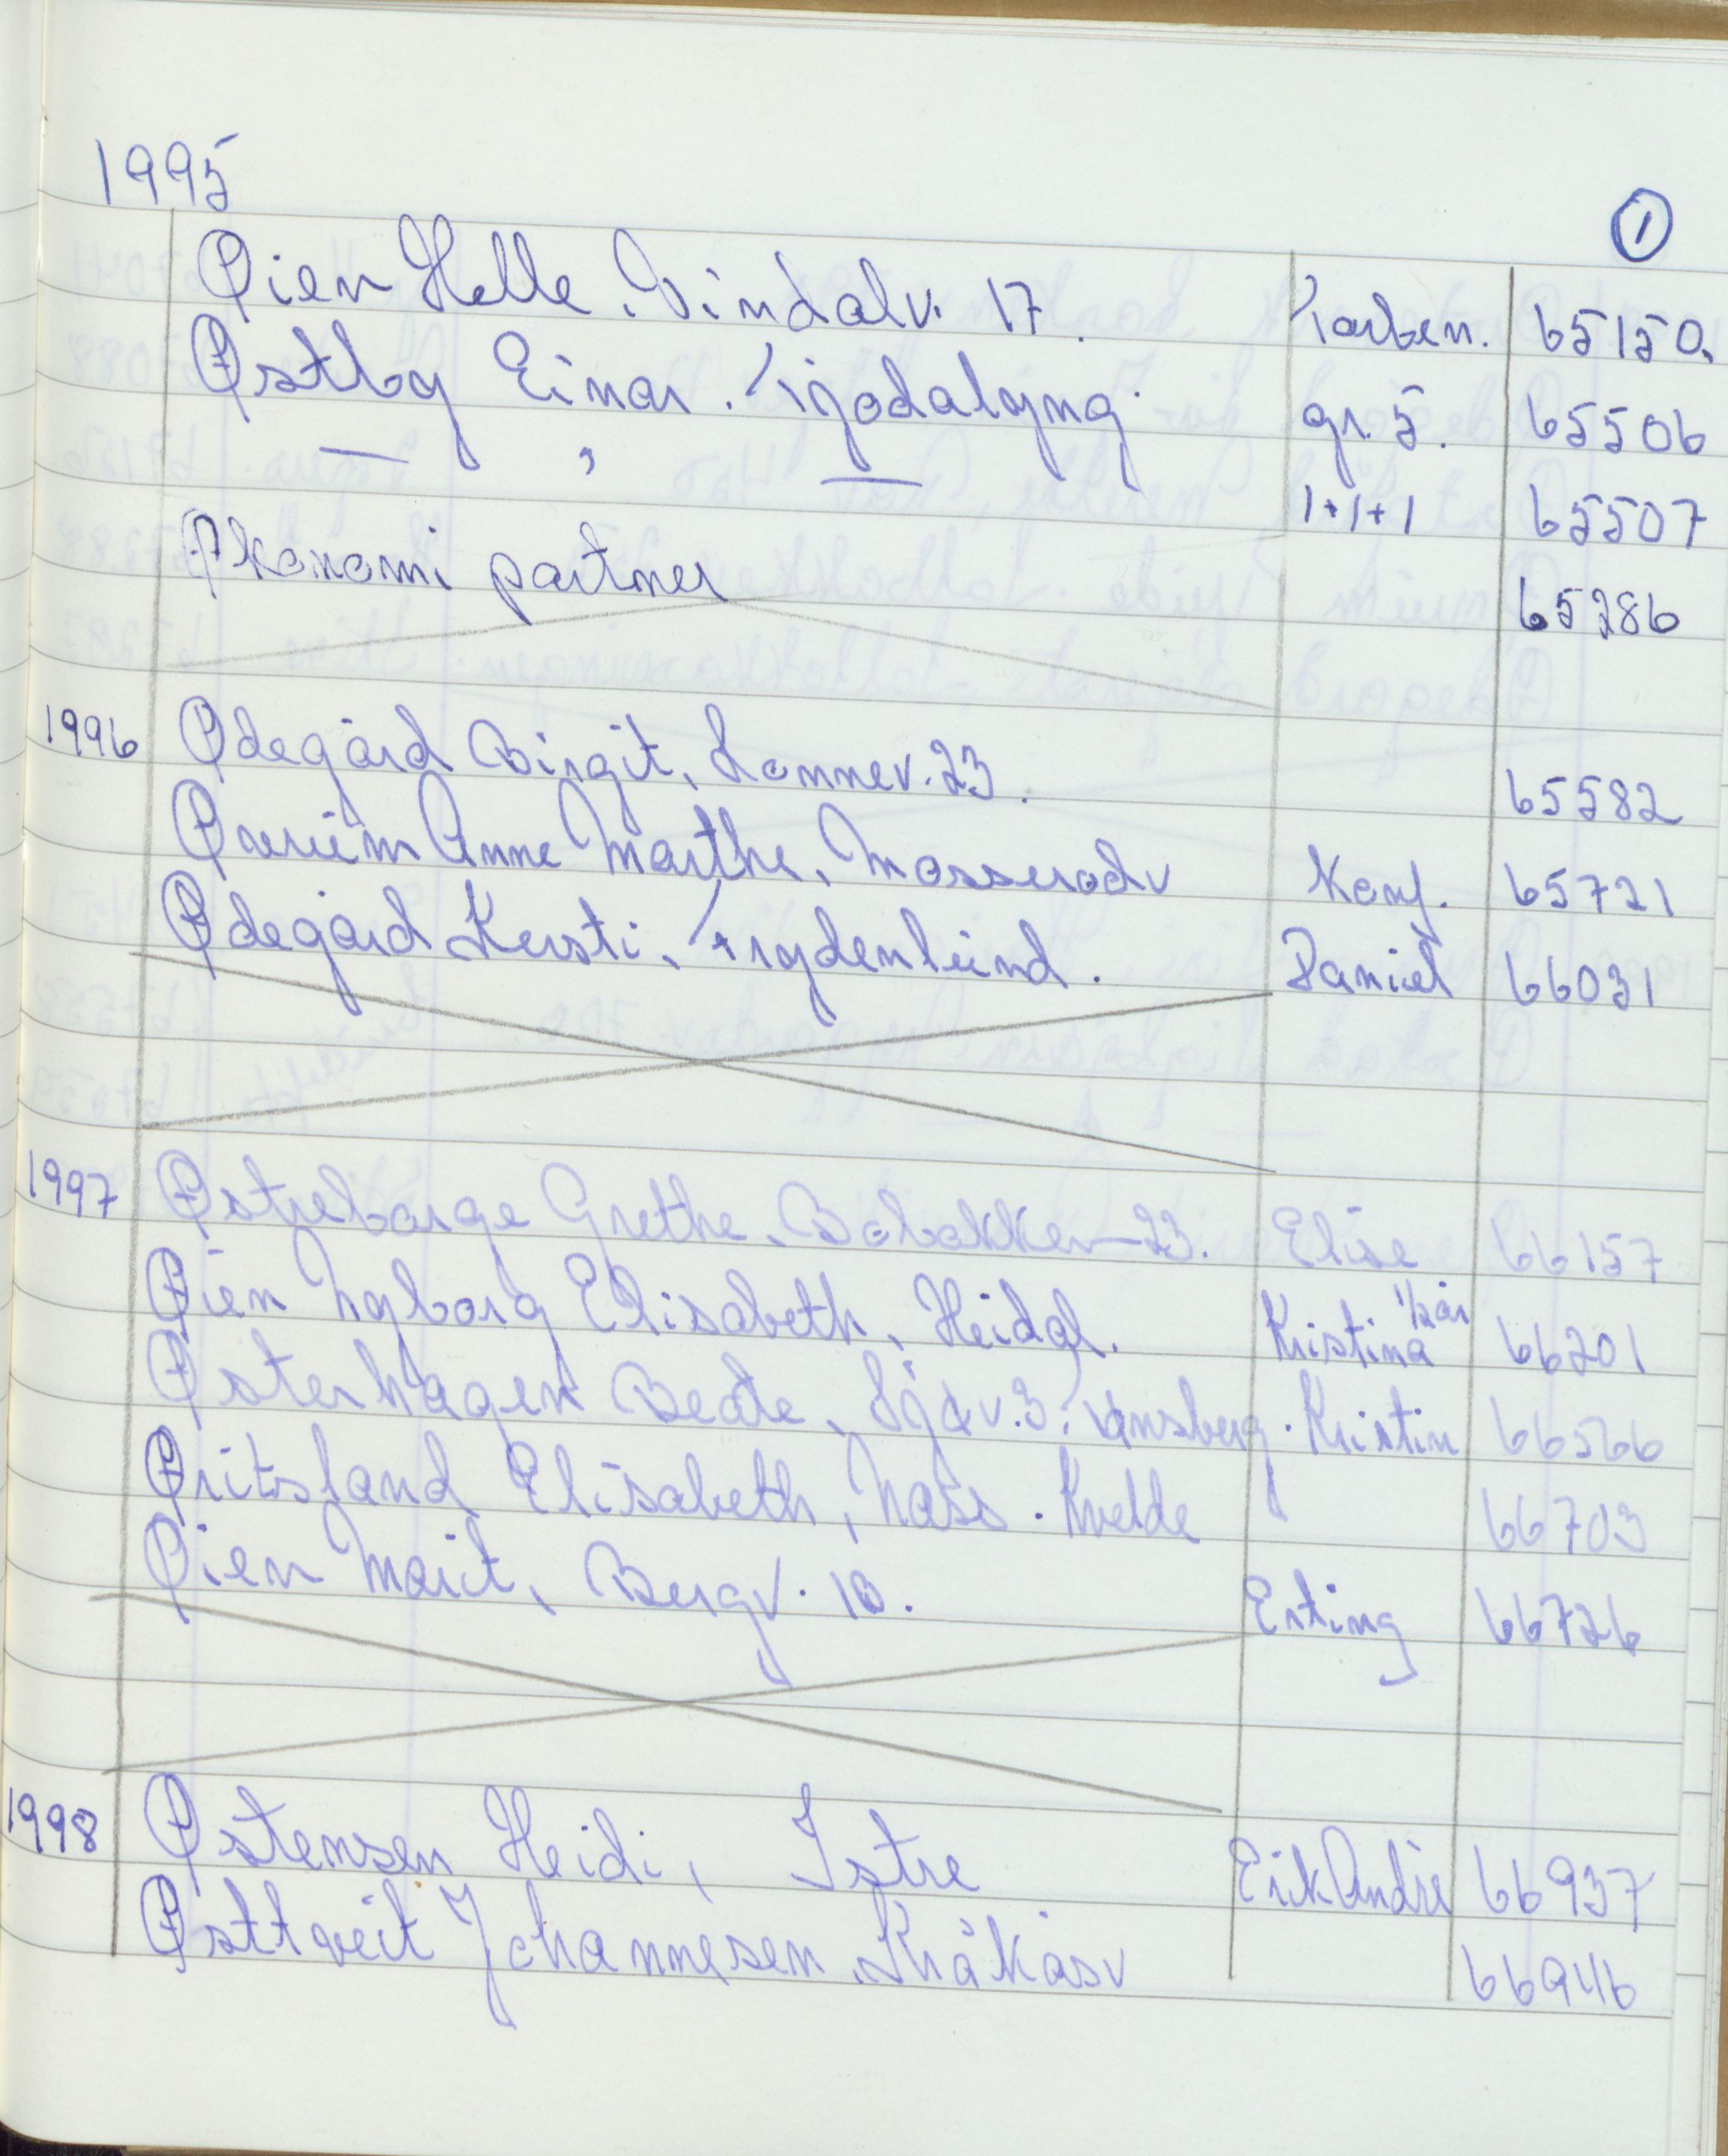 1995
①
Øien Helle, Vindalv. 17. Torben. 65150.
Østby Einar. Tjodalyng. gr. 5. 65506
— , — 1+1+1 65507
Økonomi partner 65286
1996 Ødegård Birgit, Lommev. 23. 65582
Øverum Anne Marthe, Mosserødv Konf. 65721
Ødegård Kersti, Frydenlund. Daniel 66031
1997 Østreborge Grethe, Bobakken 23. Elise 66157
Øien Ingborg Elisabeth, Heidal. Kristina 1/2 år 66201
Østerhagen Beate, 3, Tønsberg. Kristin 66566
Øritsland Elisabeth, Kvelde 66703
Øien Marit, Bergv. 10. Erling 66726
1998 Østensen Heidi, Istre Erik André 66937
Østtveit Johannesen, Kråkåsv 66946